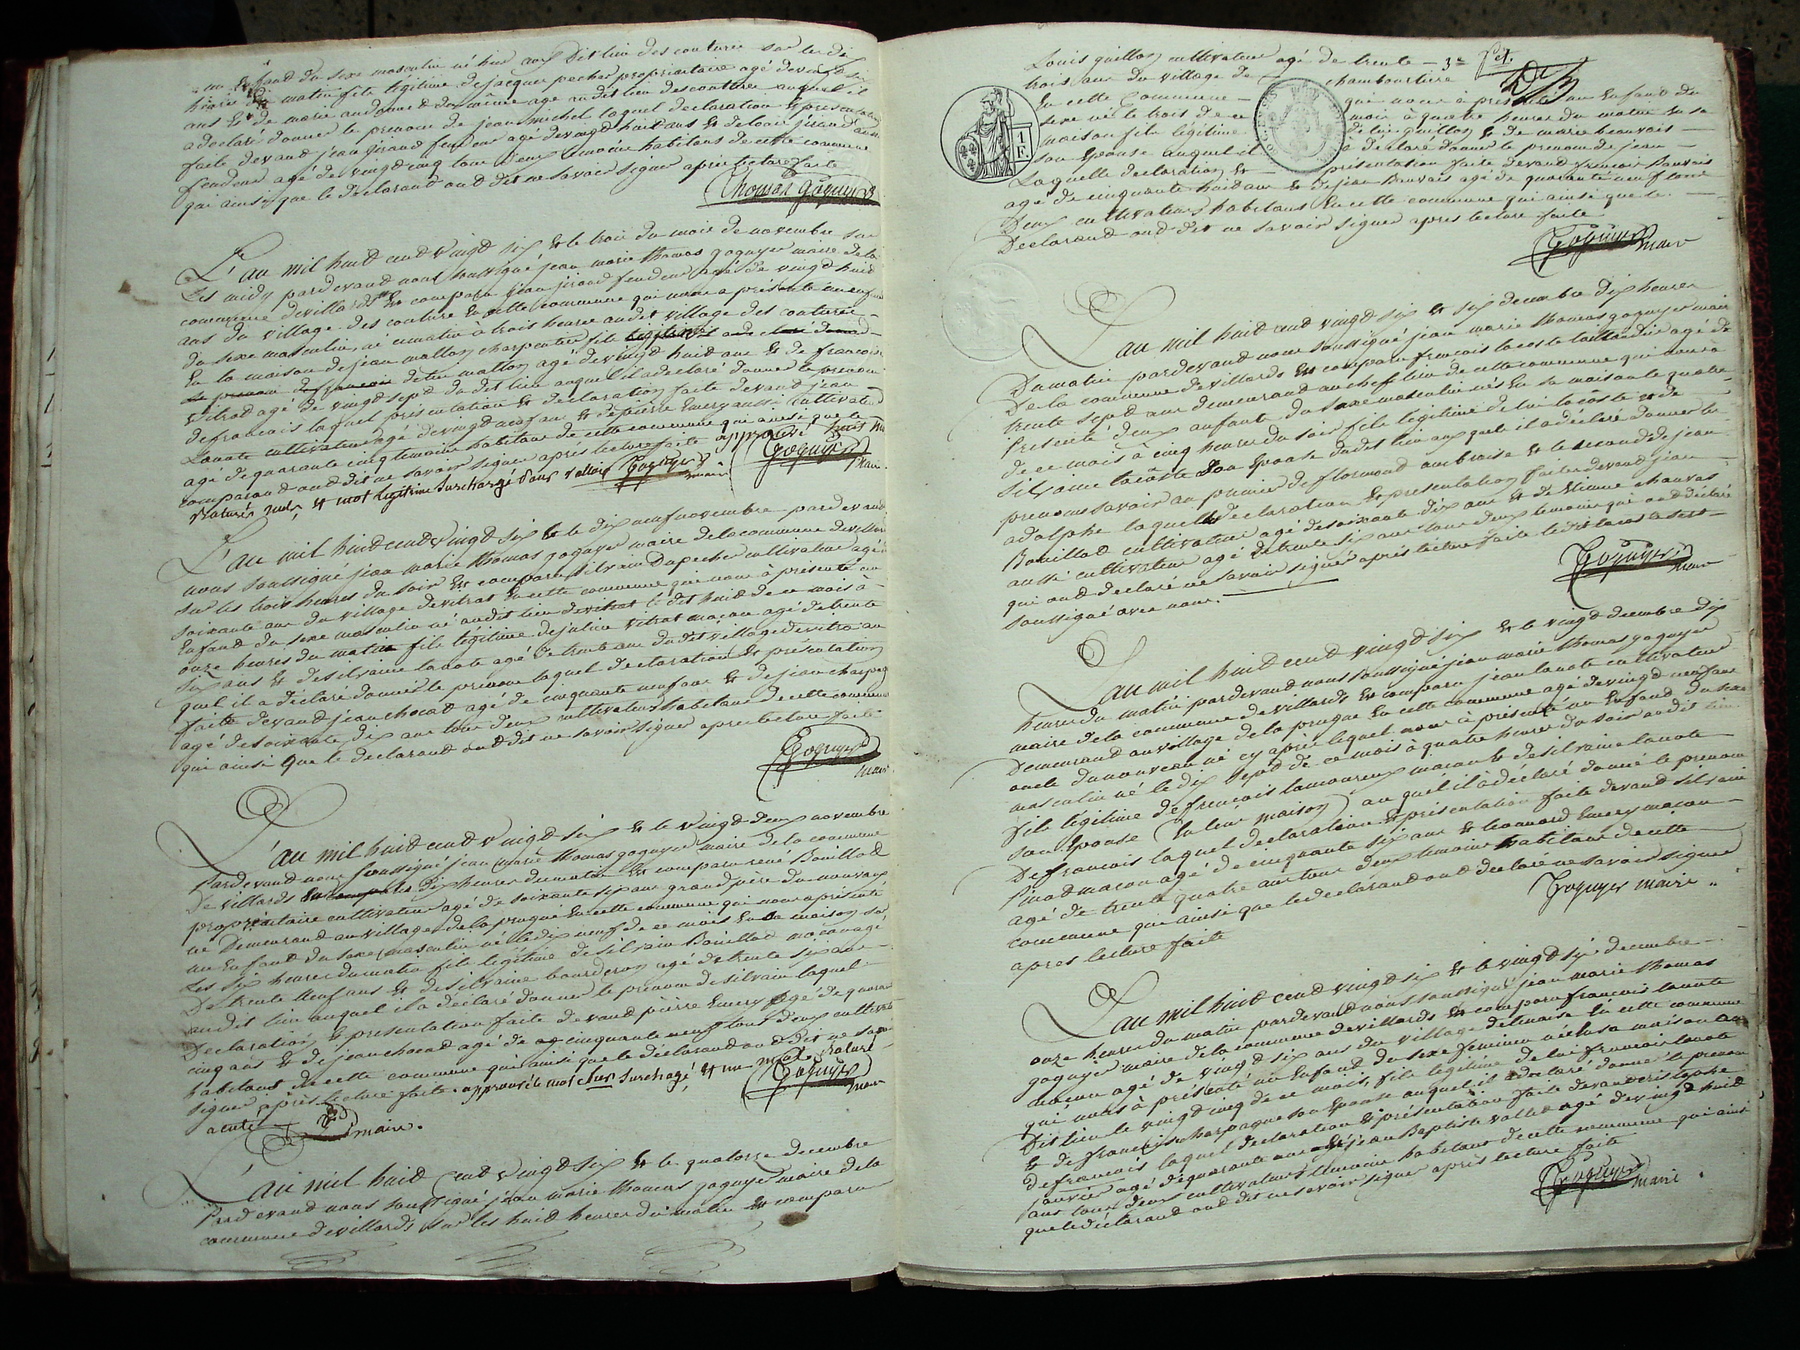 un Enfand du sexe masculin né hier au dit lieu des couture sur les dix
heures du matin fils légitime de jacques pecher propriettaire agé de vingt six
ans Et de marie andrieux du même age au dit lieu des couture auquel il
a déclaré donner le prenom de jean michel laquel declaration Et presentation
faite devand jean girand fendeur agé de vingt huid ans Et de louis girand aussi
fendeur agé de vingt cinq tous deux témoins habitans de cette commune
qui ainsi que le declarand ond dit ne savoir signer après lecture faite
Thomas Goguyer
L'an mil huid cend vingd six Et le trois du mois de novembre sur
les midy pardevand nous soussigné jean marie thomas goguyer maire de la
commune de villards Est comparu jean girand fendeur agé de vingd huid
ans du village des couture En cette commune qui nous a présenté un enfand
du sexe masculin, né ce matin à trois heures au dit village des couturés
En la maison de jean matton charpentier fils légitime
de françois de lui matton agé de vingd huid ans Et de francoise
vitrad agé de vingd sept du dit lieu auquel il a declaré donner le prenom
de francois laquel présentation Et declaration faite devand jean
Lanote cultivateur agé de vingd neuf ans Et de pierre Emery aussi cultivateur
agé de quarante cinq temoins habitans de cette commune qui ainsi que le
comparand ond dit ne savoir signer après lecture faite approuvé huit mots
Raturés nuls, et mot légitime surchargé pour valloir Goguyer maire Goguyer maire
L'an mil huid cend vingd six Et le dix neuf novembre pardevand
nous soussigné jean marie thomas goguyer maire de la commune de villards
sur les trois heures du soir Est comparu silvain Dupecher cultivateur agé
soixante ans du village de vitrat En cette commune qui nous à présenté un
Enfand du sexe masculin né au dit lieu de vitrat le dit huid de ce mois à
onze heures du matin fils légitime de julien vitrat macon agé de trente
six ans Et de silvaine lanote agé de trente ans du dit village de vitra au
quel il a déclaré donner le prenom laquel declaration Et présentation
faite devand jean chocat agé de cinquante neuf ans Et de jean charpag
agé de soixante dix ans tous deux cultivateurs habitans de cette commune
qui ainsi que le declarand ond dit ne savoir signer apres lecture faite
Goguyer maire
L'an mil huid cend vingd six Et le vingd deux novembre
Pardevand nous soussigné jean marie thomas goguyer maire de la commune
de villards dix heures du matin Est comparu rené Bouillod
propriétaire cultivateur agé de soixante six ans grand père du nouveau
né Demeurand au village de la prugne En cette commune qui nous a présenté
un Enfand du sexe masculin né le dix neuf de ce mois En sa maison sur
les six heures du matin fils légitime de silvain Bouillod macon agé
de trente neuf ans Et de silvaine bourderon agé de trente six ans
au dit lieu auquel il a déclaré donner le prenom de silvain laquel
Declaration Et presentation faite devand pierre Emery agé de quarante
cinq ans Et de jean chocad agé de cinquante neuf tous deux cultivateurs
habitans de cette commune qui ainsi que le declarand ond dit ne savoir
signer après lecture faite. approuvé le mot surchargé, et un mot Raturé
a cette maire. Goguyer maire
L'an mil huid cend vingd six Et le quatorze decembre
Pardevand nous soussigné jean marie thomas goguyer maire de la
commune de villards sur les huid heures du matin Est comparu
Louis guillon cultivateur agé de trente — 3e fet.
trois ans du village de chambourtiere
En cette Commune — que nous à présenté un Enfand du
sexe né le trois de ce mois à quatre heures du matin En sa
maison fils légitime de lui guillon Et de marie beauvais —
son Epouse auquel il a déclaré donner le prenom de jean —
Laquelle declaration Et — présentation faite devand francois Bauvais
agé de cinquante huid ans Et de jean Bauvais agé de quarante neuf tous
Deux cultivateurs habitans En cette commune qui ainsi que le
Declarand ond dit ne savoir signer apres lecture faite
Goguyer maire
L'an mil huid cend vingd six Et six decembre dix heures
Du matin pardevand nous soussigné jean marie thomas goguyer maire
De la commune de villards Est comparu francois lacoste agé de
trente sept ans demeurand au cheff lieu de cette commune qui nous à
Presenté deux enfants du sexe masculin nés En sa maison le quatre
de ce mois à cinq heures du soir fils légitime de lui lacoste et de
Silvaine son Epouse du dit lieu aux quels il a déclaré donner les
prenoms savoir au premier de florimond ambroise et le second de jean
adolphe laquelle declaration Et presentation faite devand jean
Bouillod cultivateur agé de soixante dix ans Et de Etienne chauvas
aussi cultivateur agé de trente six ans tous deux temoins qui ond déclaré
qui ond declaré ne savoir signer après lecture faite le dit lacoste s'est
soussigné avec nous.
Goguyer maire
L'an mil huid cend vingd six Et le vingd decembre dix
heures du matin pardevand nous soussigné jean marie thomas goguyer
maire de la commune de villards Est comparu jean lanote cultivateur
Demeurand au village de la prugne En cette commune agé de vingd neuf ans
oncle du nouveau né cy après lequel nous à présenté un Enfand du sexe
masculin né le dix sept de ce mois à quatre heures du soir au dit lieu
fils légitime de francois lamoureux macon Et de silvaine lanote
son Epouse En leur maison auquel il à déclaré donné le prenom
De francois laquel declaration Et présentation faite devand silvain
Pinod macon agé de cinquante six ans Et leonard Emery macon
agé de trente quatre ans tous deux temoins habitans de cette
commune qui ainsi que le declarand ond declaré ne savoir signer
apres lecture faite
Goguyer maire
L'an mil huid cend vingd six Et le vingd six decembre
onze heures du matin pardevand nous soussigné jean marie thomas
goguyer maire de la commune de villards Est comparu francois lanote
macon agé de vingd six ans du village de En cette commune
qui nous à présenté un Enfand du sexe feminin né En sa maison au
Dit lieu le vingd cinq de ce mois, fils légitime de lui francois lanote
Et de francoise charpagne son Epouse auquel il a déclaré donné le prenom
de francois laquel declaration Et présentation faite devand
agé de quarante ans Et jean Baptiste vallet agé de vingd huid
ans tous deux cultivateurs temoins habitans de cette commune qui ainsi
que le déclarand ond dit ne savoir signer après lecture faite
Goguyer maire